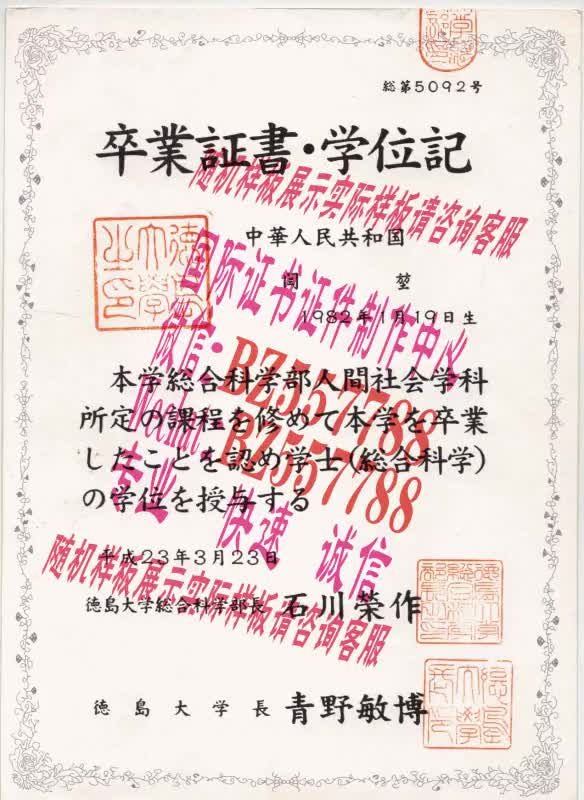 総第5092号
卒業証書・学位記
随机样板展示实际样板请咨询客服
中華人民共和国
闫 堃
1982年1月19日生
国际证书证件制作中心
微信:BZ557788
Wechat:BZ557788
本学総合科学部人間社会学科
所定の課程を修めて本学を卒業
したことを認め学士(総合科学)
の学位を授与する
专业 快速 诚信
平成23年3月23日
随机样板展示实际样板请咨询客服
徳島大学総合科学部長 石川榮作
徳島大学長 青野敏博